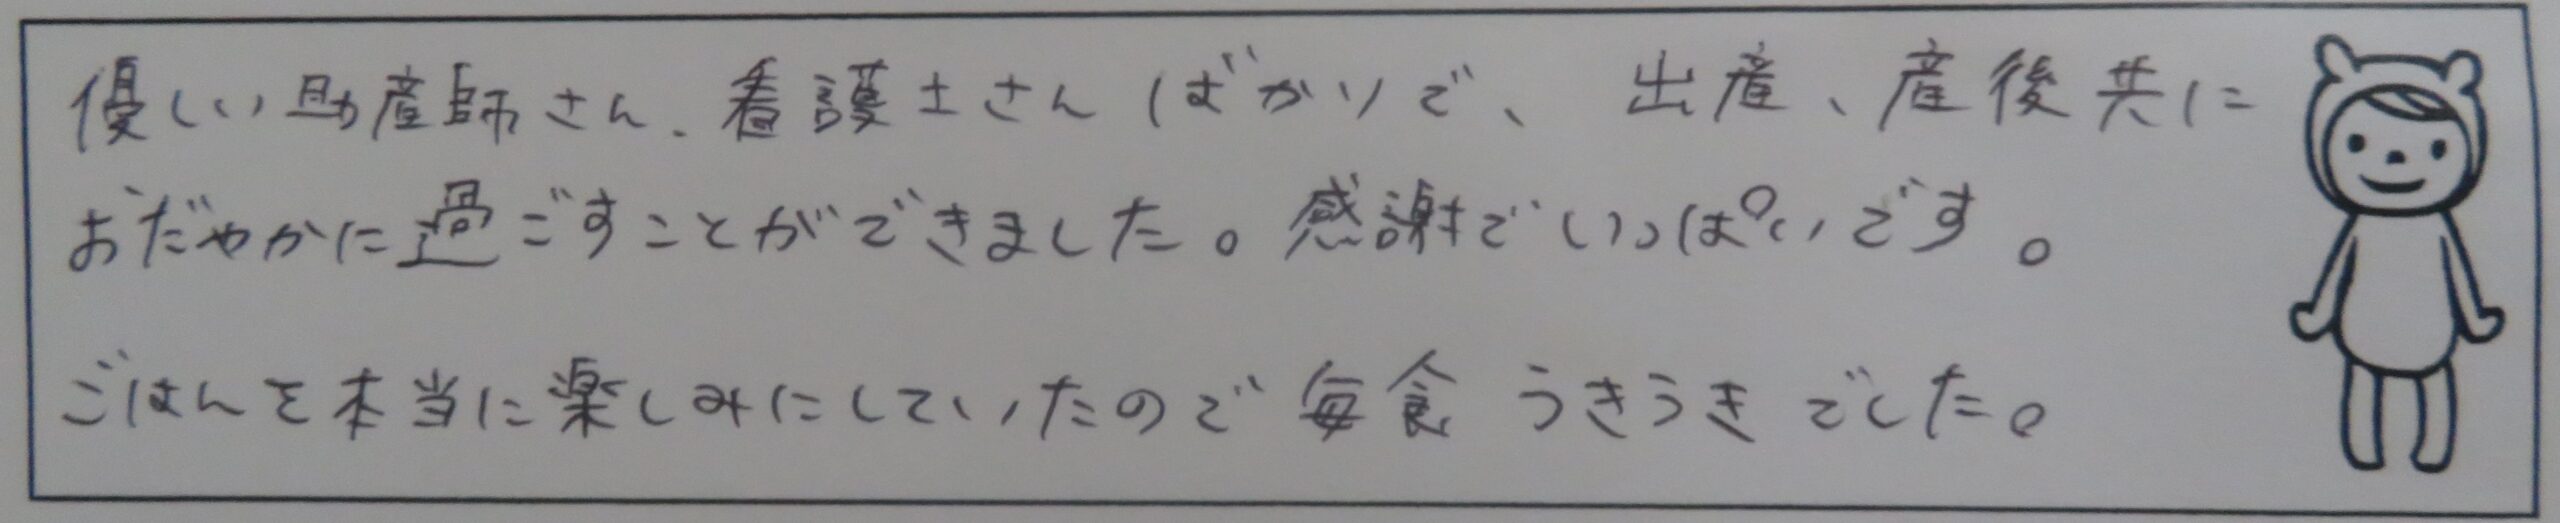 優しい助産師さん、看護士さんばかりで、出産、産後共に
おだやかに過ごすことができました。感謝でいっぱいです。
ごはんを本当に楽しみにしていたので毎食うきうきでした。